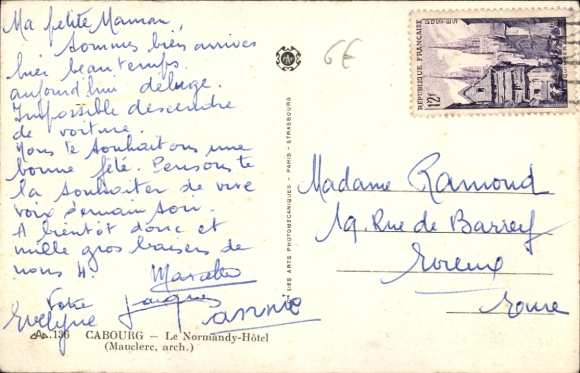 Ma petite Maman,
Sommes bien arrivés
hier beau temps.
aujourd'hui déluge.
Impossible descendre
de voiture.
Vous te souhaitons une
bonne fête. Pensons te
la souhaiter de vive
voix demain soir.
A bientôt donc et
mille gros baisers de
nous 4.
Votre Jacques
Evelyne Annie
136 CABOURG – Le Normandy-Hôtel
(Mauclerc, arch.)
LES ARTS PHOTOMÉCANIQUES - PARIS - STRASBOURG
6€
RÉPUBLIQUE FRANÇAISE
POSTES
12f
Madame Ramond
19, Rue de Barrey
Evreux
Eure